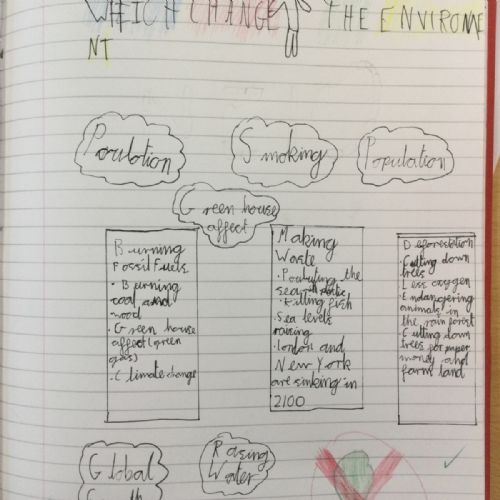 WHICH CHANGE THE ENVIROME
NT
Poulotion
Smoking
Population
Green house
affect
Burning
Fossil Fuels
• Burning
coal and
wood
• Green house
affect (green
gas)
• Climate change
Making
Waste
• Poluting the
sea
• Killing fish
Sea levels
raising
• London and
New York
are sinking in
2100
Deforestation
• Cutting down
trees
Less oxygen
• Endangering
animals in
the rain forest
• Cutting down
trees for paper
money and
farm land
Global
Raeing
Water